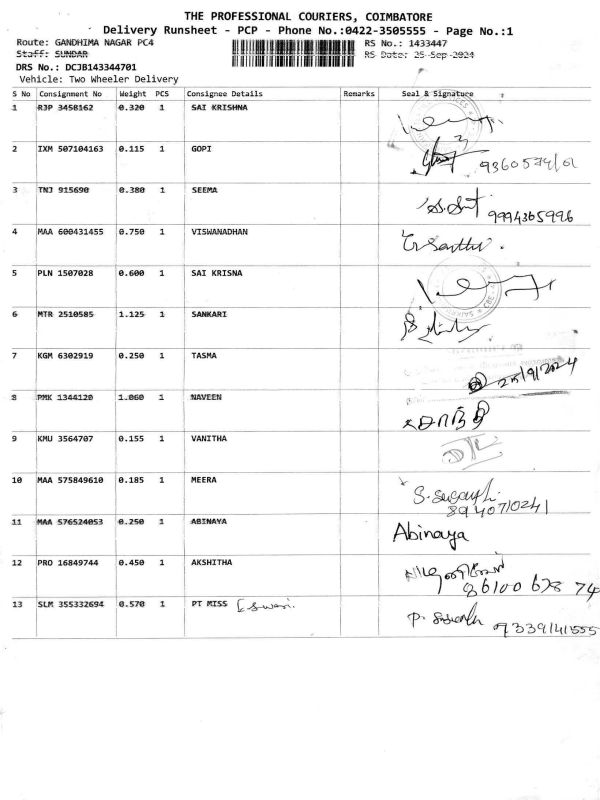 THE PROFESSIONAL COURIERS, COIMBATORE
Delivery Runsheet - PCP - Phone No.:0422-3505555 - Page No.:1
Route: GANDHIMA NAGAR PC4 RS No.: 1433447
Staff: SUNDAR RS Date: 25-Sep-2024
DRS No.: DCJB143344701
Vehicle: Two Wheeler Delivery
S No Consignment No Weight PCS Consignee Details Remarks Seal & Signature
1 RJP 3458162 0.320 1 SAI KRISHNA
2 IXM 507104163 0.115 1 GOPI
3 TNJ 915690 0.380 1 SEEMA 9994365996
4 MAA 600431455 0.750 1 VISWANADHAN
5 PLN 1507028 0.600 1 SAI KRISNA
6 MTR 2510585 1.125 1 SANKARI
7 KGM 6302919 0.250 1 TASMA 25/9/2024
8 PMK 1344120 1.060 1 NAVEEN சாந்தி
9 KMU 3564707 0.155 1 VANITHA
10 MAA 575849610 0.185 1 MEERA
8940710241
11 MAA 576524053 0.250 1 ABINAYA Abinaya
12 PRO 16849744 0.450 1 AKSHITHA
86100 678 74
13 SLM 355332694 0.570 1 PT MISS Eswari. 9339141555